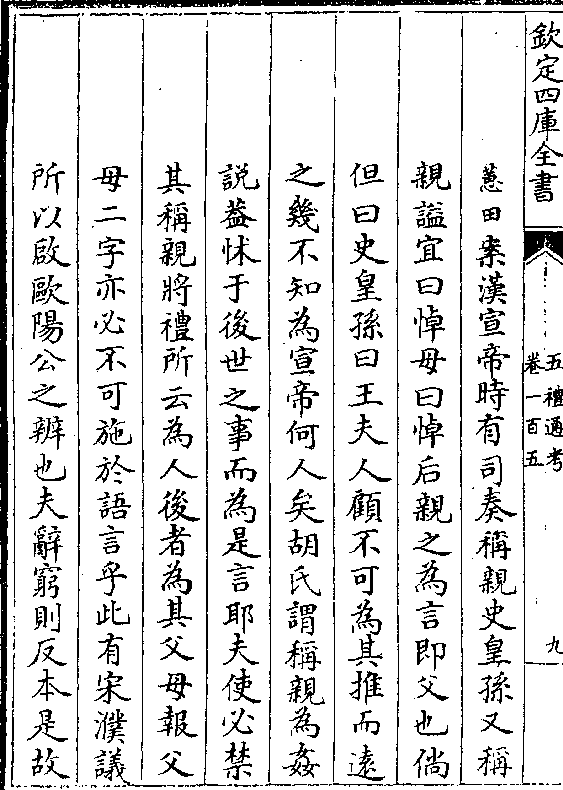 欽定四庫全書
五禮通考
卷一百五
九
蕙田案漢宣帝時有司奏稱親史皇孫又稱
親諡宜曰悼母曰悼后親之為言即父也倘
但曰史皇孫曰王夫人顧不可為其推而遠
之幾不知為宣帝何人矣胡氏謂稱親為姦
說葢怵于後世之事而為是言耶夫使必禁
其稱親將禮所云為人後者為其父母報父
母二字亦必不可施於語言乎此有宋濮議
所以啟歐陽公之辨也夫辭窮則反本是故